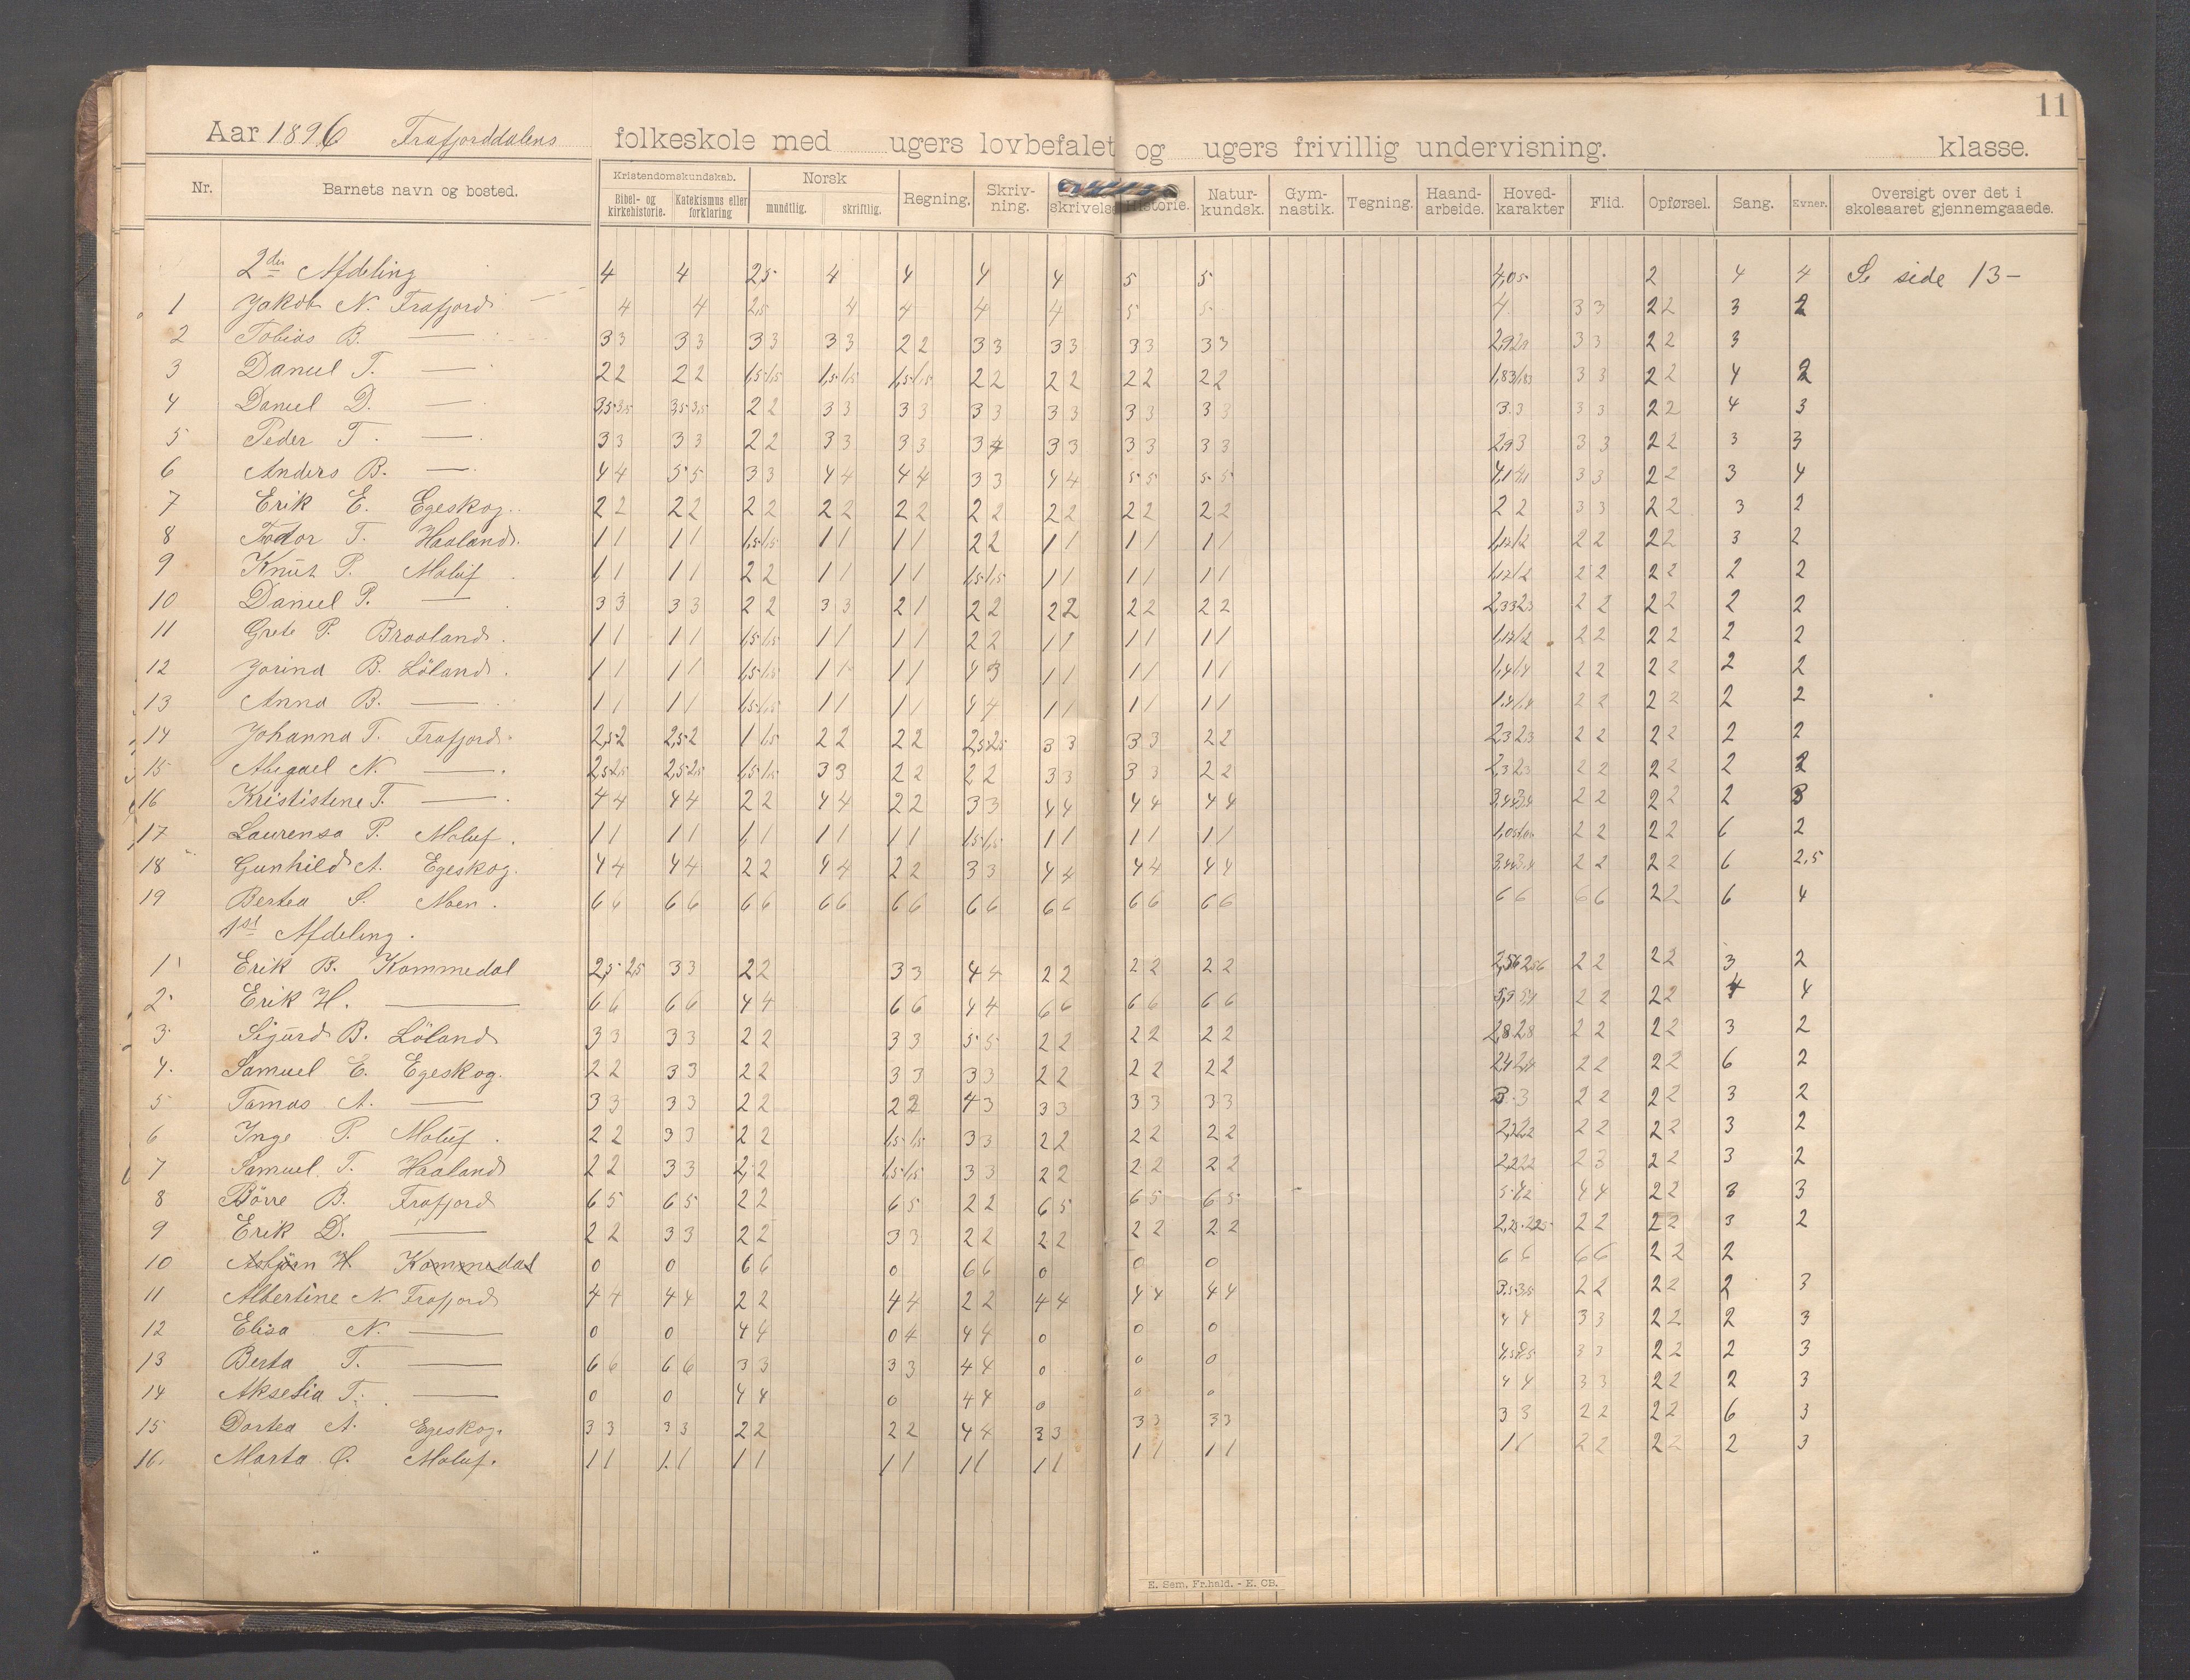 11
Aar 1896 Frafjorddalens folkeskole med ugers lovbefalet og ugers frivillig undervisning. klasse.
Nr. Barnets navn og bosted. Kristendomskundskab. Bibel- og kirkehistorie. Katekismus eller forklaring Norsk mundtlig. skriftlig. Regning. Skriv-ning. skrivelse Historie. Natur-kundsk. Gym-nastik. Tegning. Haand-arbeide. Hoved-karakter Flid. Opførsel. Sang. Evner. Oversigt over det i skoleaaret gjennemgaaede.
2den Afdeling 4 4 2,5 4 4 4 4 5 5 4,05 2 4 4 Se side 13-
1 Jakob N. Frafjord 4 4 2,5 4 4 4 4 5 5 4 3 3 2 2 3 2
2 Tobias B. — 3 3 3 3 3 3 3 3 2 2 3 3 3 3 3 3 3 3 2,9 2,9 3 3 2 2 3
3 Daniel T. — 2 2 2 2 1,5 1,5 1,5 1,5 1,5 1,5 2 2 2 2 2 2 2 2 1,83 1,83 3 3 2 2 4 2
4 Daniel D. — 3,5 3,5 3,5 3,5 2 2 3 3 3 3 3 3 3 3 3 3 3 3 3 3 3 3 2 2 4 3
5 Peder T. — 3 3 3 3 2 2 3 3 3 3 3 4 3 3 3 3 3 3 2,9 3 3 3 2 2 3 3
6 Anders B. — 4 4 5 5 3 3 4 4 4 4 3 3 4 4 5 5 5 5 4,1 4,1 3 3 2 2 3 4
7 Erik E. Egeskog. 2 2 2 2 2 2 2 2 2 2 2 2 2 2 2 2 2 2 2 2 3 3 2 2 3 2
8 Todor T. Haaland. 1 1 1 1 1,5 1,5 1 1 1 1 2 2 1 1 1 1 1 1 2 2 2 2 3 2
9 Knut P. Molüf 1 1 1 1 2 2 1 1 1 1 1,5 1,5 1 1 1 1 1 1 2 2 2 2 2 2
10 Daniel P. — 3 3 3 3 2 2 3 3 2 1 2 2 2 2 2 2 2 2 2,33 2,3 2 2 2 2 2 2
11 Grete P. Braaland. 1 1 1 1 1,5 1,5 1 1 1 1 2 2 1 1 1 1 1 1 2 2 2 2 2 2
12 Jorina B. Löland. 1 1 1 1 1,5 1,5 1 1 1 1 4 3 1 1 1 1 1 1 1,4 1,4 2 2 2 2 2 2
13 Anna B. — 1 1 1 1 1,5 1,5 1 1 1 1 4 4 1 1 1 1 1 1 1,4 1,4 2 2 2 2 2 2
14 Johanna T. Frafjord. 2,5 2 2,5 2 1 1,5 2 2 2 2 2,5 2,5 3 3 3 3 2 2 2,3 2,3 2 2 2 2 2 2
15 Abigael N. — 2,5 2,5 2,5 2,5 1,5 1,5 3 3 2 2 2 2 3 3 3 3 2 2 2,3 2,3 2 2 2 2 2 2
16 Krististene T. — 4 4 4 4 2 2 4 4 2 2 3 3 4 4 4 4 4 4 2 2 2 2 2 3
17 Laurensa P. Moluf. 1 1 1 1 1 1 1 1 1 1 1,5 1,5 1 1 1 1 1 1 2 2 2 2 6 2
18 Gunhild A. Egeskog. 4 4 4 4 2 2 4 4 2 2 3 3 4 4 4 4 4 4 2 2 2 2 6 2,5
19 Bertea S. Moen. 6 6 6 6 6 6 6 6 6 6 6 6 6 6 6 6 6 6 6 6 6 6 2 2 6 4
1st Afdeling.
1 Erik B. Kommedal 2,5 2,5 3 3 2 2 3 3 4 4 2 2 2 2 2 2 2,56 2,56 2 2 2 2 3 2
2 Erik H. — 6 6 6 6 4 4 6 6 4 4 6 6 6 6 6 6 2 2 2 2 4 4
3 Sigurd B. Löland 3 3 3 3 2 2 3 3 5 5 2 2 2 2 2 2 2,8 2,8 2 2 2 2 3 2
4. Samuel E. Egeskog. 2 2 3 3 2 2 3 3 3 3 2 2 2 2 2 2 2,4 2,4 2 2 2 2 6 2
5 Tomas A. — 3 3 3 3 2 2 2 2 4 3 3 3 3 3 3 3 3 3 2 2 2 2 3 2
6 Inge P. Molüf. 2 2 3 3 2 2 1,5 1,5 3 3 2 2 2 2 2 2 2,2 2,2 2 2 2 2 3 2
7 Samuel T. Haaland 2 2 3 3 2 2 1,5 1,5 3 3 2 2 2 2 2 2 2,2 2,2 2 3 2 2 3 2
8 Börre B. Frafjord 6 5 6 5 2 2 6 5 2 2 6 5 6 5 6 5 5 4,2 4 4 2 2 3 3
9 Erik D. — 2 2 3 3 2 2 3 3 2 2 2 2 2 2 2 2 2,25 2,25 2 2 2 2 3 2
10 Asbjörn H. Kommedal 0 0 6 6 0 6 6 0 0 0 6 6 6 6 2 2 2
11 Albertine N. Frafjord 4 4 4 4 2 2 4 4 2 2 4 4 4 4 4 4 3,5 3,5 2 2 2 2 2 3
12 Elisa N. — 0 0 4 4 0 4 4 4 0 0 0 4 4 3 3 2 2 2 3
13 Berta T. — 6 6 6 6 3 3 3 3 4 4 0 0 0 3 3 2 2 2 3
14 Akselia T. — 0 0 4 4 0 4 4 0 0 0 4 4 3 3 2 2 2 3
15 Dortea A. Egeskog. 3 3 3 3 2 2 2 2 4 4 3 3 3 3 3 3 3 3 2 2 2 2 6 3
16. Marta O. Moluf. 1 1 1 1 1 1 1 1 1 1 1 1 1 1 1 1 1 1 2 2 2 2 2 3
E. Sem, Fr.hald. - E. CB.